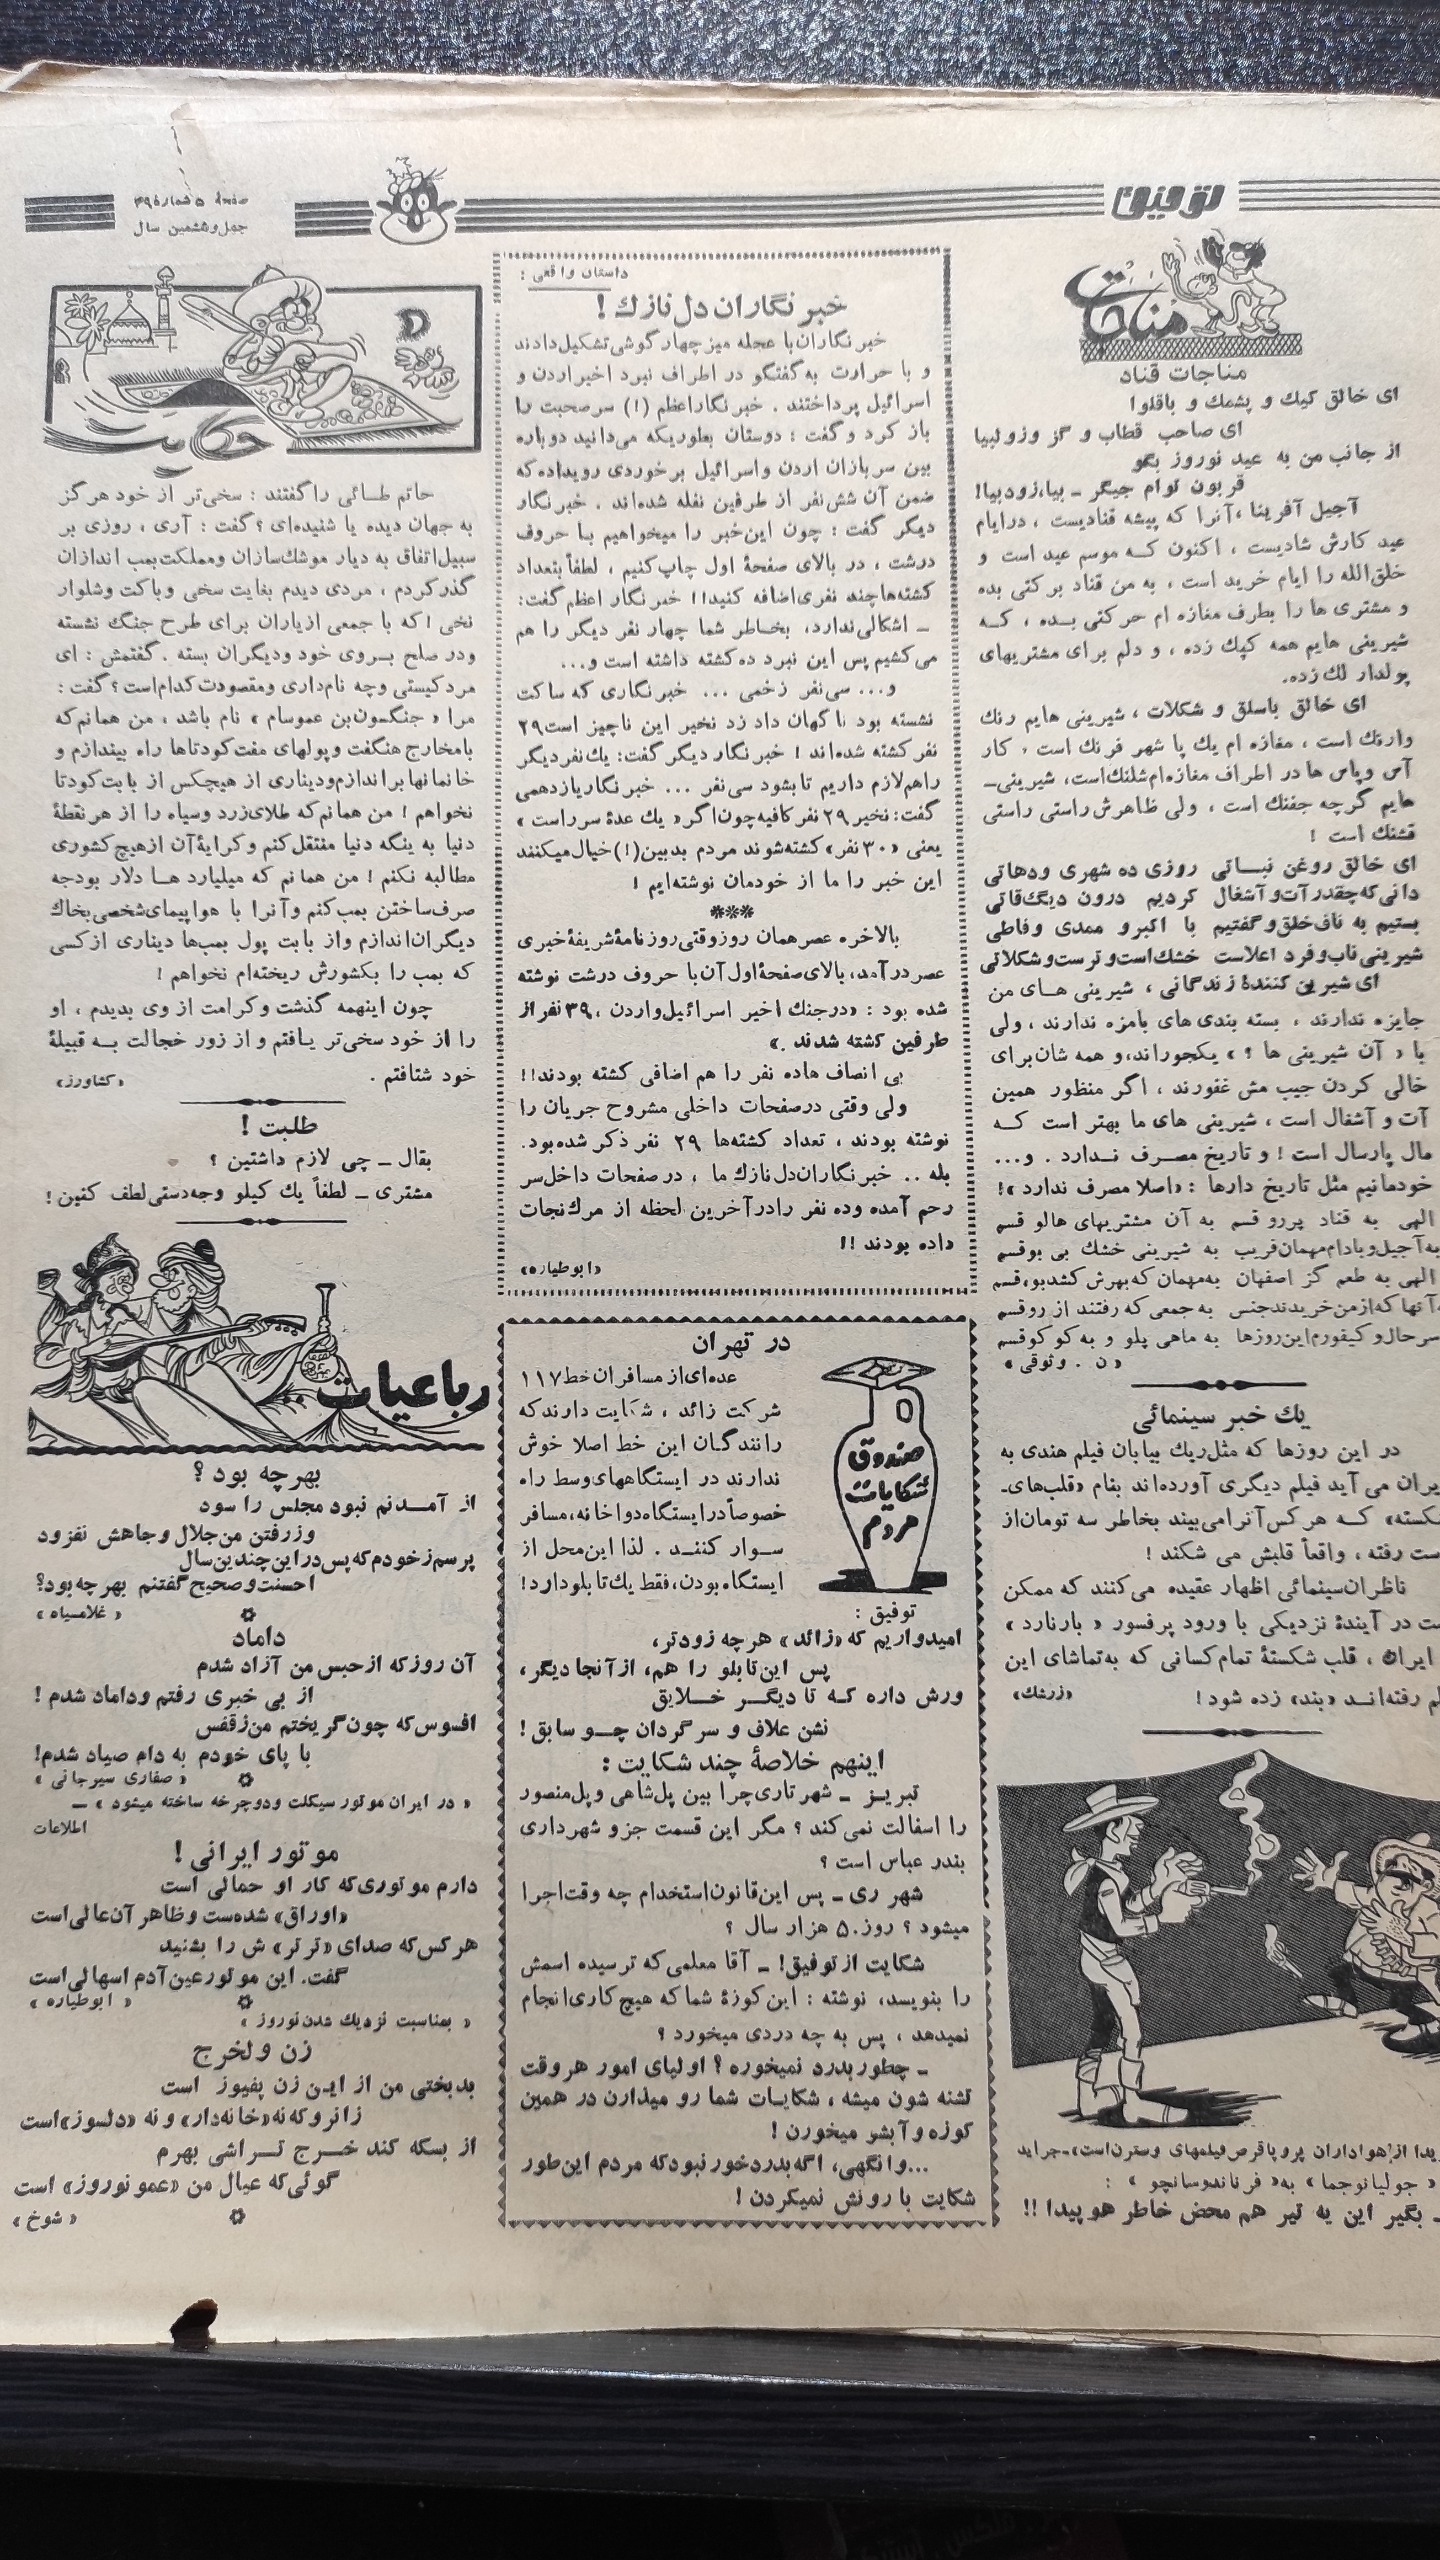 توفیق
صفحهٔ ۵ شماره ۴۹
چهل‌وششمین سال
مناجات
مناجات قناد
ای خالق کیک و پشمک و باقلوا
ای صاحب قطاب و گز وزولبیا
از جانب من به عید نوروز بگو
قربون لوام جیگر ــ بیا، زودبیا!
آجیل آفرینا ، آنرا که پیشه قنادیست ، درایام
عید کارش شادیست ، اکنون کـه موسم عید است و
خلق‌الله را ایام خرید است ، به من قناد برکتی بده
و مشتری ها را بطرف مغازه ام حرکتی بـده ، کـه
شیرینی هایم همه کپک زده ، و دلم برای مشتریهای
پولدار لك زده.
ای خالق باسلق و شکلات ، شیرینی هایم رنك
وارنك است ، مغازه ام یك پا شهر فرنك است ، کار
آس وپاس ها در اطراف مغازه‌ام شلنك‌است، شیرینی‌ــ
هایم گرچه جفنك است ، ولی ظاهرش راستی راستی
قشنك است !
ای خالق روغن نبـاتی روزی ده شهری ودهاتی
دانی‌که‌چقدرآت‌وآشغال کردیم درون دیگ‌قاتی
بستیم به ناف‌خلق‌وگفتیم با اکبرو ممدی وفاطی
شیرینی‌ناب‌وفرد اعلاست خشك‌است‌وترست‌وشکلاتی
ای شیرین کنندهٔ زندگانی ، شیرینی هـای من
جایزه ندارند ، بسته بندی های بامزه ندارند ، ولی
با « آن شیرینی ها ؟ » یکجوراند،و همه شان برای
خالی کردن جیب مش غفورند ، اگر منظور همین
آت و آشغال است ، شیرینی های ما بهتر است کـه
مال پارسال است ! و تاریخ مصـرف نـدارد . و...
خودمانیم مثل تاریخ دارها : «اصلا مصرف ندارد »!
الهی به قناد پررو قسم به آن مشتریهای هالو قسم
به‌آجیل‌وبادام‌مهمان‌فریب به شیرینی خشك بی بوقسم
الهی به طعم گز اصفهان به‌مهمان که‌بهرش کشدبو،قسم
آنها که‌ازمن‌خریدندجنس به‌جمعی که رفتند از روقسم
سرحال‌وکیفورم‌این‌روزها به ماهی پلو و به‌کوکوقسم
« ن . وثوقی »
یك خبر سینمائی
در این روزها که مثل‌ریك بیابان فیلم هندی به
یران می آید فیلم دیگری آورده‌اند بنام «قلب‌های‌ــ
کسته» کـه هرکس‌آنرامی‌بیند بخاطر سه تومان‌از
ست رفته ، واقعاً قلبش می شکند !
ناظران‌سینمائی اظهار عقیده می‌کنند که ممکن
ست در آیندهٔ نزدیکی با ورود پرفسور « بارنارد »
ایران ، قلب شکستهٔ تمام‌کسانی که به‌تماشای این
لم رفته‌انـد «بند» زده شود !
«زرشك»
یدا ازهواداران پروپاقرص‌فیلمهای وسترن‌است»ــ‌جراید
« جولیانوجما » به« فرناندوسانچو » :
ــ بگیر این یه تیر هم محض خاطر هو پیدا !!
داستان واقعی :
خبر نگاران دل نازك !
خبرنگاران‌با عجله میز چهارگوشی‌تشکیل‌دادند
و با حرارت به‌گفتگو در اطراف نبرد اخیراردن و
اسرائیل پرداختند . خبرنگاراعظم (!) سرصحبت را
باز کرد وگفت : دوستان بطوریکه می‌دانید دوباره
بین سربازان اردن واسرائیل برخوردی رویداده‌که
ضمن آن شش‌نفر از طرفین نفله شده‌اند . خبرنگار
دیگر گفت : چون این‌خبر را میخواهیم بـا حروف
درشت ، در بالای صفحهٔ اول چاپ‌کنیم ، لطفاً بتعداد
کشته‌هاچند نفری‌اضافه کنید!! خبرنگار اعظم گفت:
ــ اشکالی‌ندارد، بخـاطر شما چهار نفر دیگر را هم
می‌کشیم پس این نبرد ده‌کشته داشته است و...
و... سی‌نفر زخمی ... خبرنگاری که ساکت
نشسته بود ناگهان داد زد نخیر این ناچیز است۲۹
نفرکشته شده‌اند ! خبرنگار دیگر گفت: یك‌نفردیگر
راهم‌لازم داریم تابشود سی‌نفر ... خبرنگاریازدهمی
گفت: نخیر۲۹ نفرکافیه‌چون‌اگر« یك عدهٔ سرراست »
یعنی «۳۰ نفر» کشته‌شوند مردم بدبین(!)خیال‌میکنند
این خبر را ما از خودمان نوشته‌ایم !
***
بالاخره عصرهمان روزوقتی‌روزنامهٔ‌شریفهٔ‌خبری
عصردرآمد، بالای‌صفحهٔ‌اول‌آن‌با حروف درشت نوشته
شده بود : «درجنك اخیر اسرائیل‌واردن ، ۳۹نفراز
طرفین کشته شدند .»
بی انصاف هاده نفر را هم اضافی کشته بودند!!
ولی وقتی درصفحات داخلی مشروح جریان را
نوشته بودند ، تعداد کشته‌ها ۲۹ نفر ذکر شده‌بود.
بله .. خبرنگاران‌دل‌نازك ما ، درصفحات داخل‌سر
رحم آمده وده نفر رادرآخرین لحظه از مرك نجات
داده بودند !!
«ابوطیاره»
صندوق
شکایات
مردم
در تهران
عده‌ای‌از مسافران خط۱۱۷
شرکت زائد ، شکایت دارندکه
رانندگـان این خط اصلا خوش
ندارند در ایستگاههای‌وسط راه
خصوصاًدرایستگاه‌دواخانه،مسافر
سـوار کننـد . لذا این‌محل از
ایستگاه‌بودن،فقط یك‌تابلودارد!
توفیق :
امیدواریم که «زائد» هرچه زودتر،
پس این‌تابلو را هم، ازآنجا دیگر،
ورش داره کـه تا دیگـر خـلایق
نشن علاف و سرگردان چـو سابق !
اینهم خلاصهٔ چند شکایت :
تبریـز ــ شهرتاری‌چرا بین پل‌شاهی وپل‌منصور
را اسفالت نمی‌کند ؟ مگر این قسمت جزو شهرداری
بندر عباس است ؟
شهر ری ــ پس این‌قانون‌استخدام چه وقت‌اجرا
میشود ؟ روز ۵۰ هزار سال ؟
شکایت ازتوفیق! ــ آقا معلمی‌که ترسیده اسمش
را بنویسد، نوشته : این‌کوزهٔ شماکه هیچ کاری‌انجام
نمیدهد ، پس به چه دردی میخورد ؟
ــ چطوربدرد نمیخوره ؟ اولیای امور هروقت
تشنه شون میشه ، شکایـات شما رو میذارن در همین
کوزه وآبشو میخورن !
...وانگهی، اگه‌بدردخورنبودکه مردم این‌طور
شکایت با رونش نمیکردن !
حکایت
حاتم طـائی راگفتند : سخی‌تر از خود هرگز
به جهان دیده یا شنیده‌ای ؟ گفت : آری ، روزی بر
سبیل‌اتفاق به دیار موشك‌سازان ومملکت‌بمب اندازان
گذرکردم ، مردی دیدم بغایت سخی وباکت وشلوار
نخی ! که با جمعی ازیاران برای طرح جنگ نشسته
ودر صلح بـروی خود ودیگران بسته . گفتمش : ای
مردکیستی وچه نام‌داری ومقصودت‌کدام‌است ؟ گفت :
مرا « جنگسون‌بن عموسام » نام باشد ، من همانم‌که
بامخارج هنگفت وپولهای مفت‌کودتاها راه بیندازم و
خانمانهابراندازم‌ودیناری از هیچکس از بابت‌کودتا
نخواهم ! من همانم‌که طلای‌زرد وسیاه را از هرنقطهٔ
دنیا به ینگه دنیا منتقل‌کنم وکرایهٔ‌آن ازهیچ‌کشوری
مطالبه نکنم ! من همانم که میلیارد هـا دلار بودجه
صرف‌ساختن بمب‌کنم وآنرا با هواپیمای‌شخصی‌بخاك
دیگران‌اندازم واز بابت پول بمب‌ها دیناری ازکسی
که بمب را بکشورش ریخته‌ام نخواهم !
چون اینهمه گذشت وکرامت از وی بدیدم ، او
را از خود سخی‌تر یـافتم و از زور خجالت بـه قبیلهٔ
خود شتافتم .
«کشاورز»
طلبت !
بقال ــ چی لازم داشتین ؟
مشتری ــ لطفاً یك کیلو وجه‌دستی‌لطف کنین !
رباعیات
بهرچه بود ؟
از آمـدنم نبود مجلس را سود
وزرفتن من‌جلال وجاهش نفزود
پرسم‌زخودم‌که‌پس‌دراین‌چندین‌سال
احسنت‌وصحیح‌گفتنم بهرچه‌بود؟
« غلامسیاه »
داماد
آن روزکه ازحبس من آزاد شدم
از بی خبری رفتم وداماد شدم !
افسوس‌که چون‌گریختم من‌زقفس
با پای خودم به دام صیاد شدم!
« صفاری سیرجانی »
« در ایران موتور سیکلت ودوچرخه ساخته میشود » ــ
اطلاعات
موتور ایرانی !
دارم موتوری‌که کار او حمالی است
«اوراق» شده‌ست وظاهر آن‌عالی‌است
هرکس‌که صدای «ترتر» ش را بشنید
گفت. این موتورعین‌آدم اسهالی‌است
« ابوطیاره »
« بمناسبت نزدیك شدن‌نوروز »
زن ولخرج
بدبختی من از ایـن زن پفیوز است
زانروکه‌نه«خانه‌دار» ونه «دلسوز»است
از بسکه کند خـرج تـراشی بهرم
گوئی‌که عیال من «عمو نوروز» است
« شوخ »